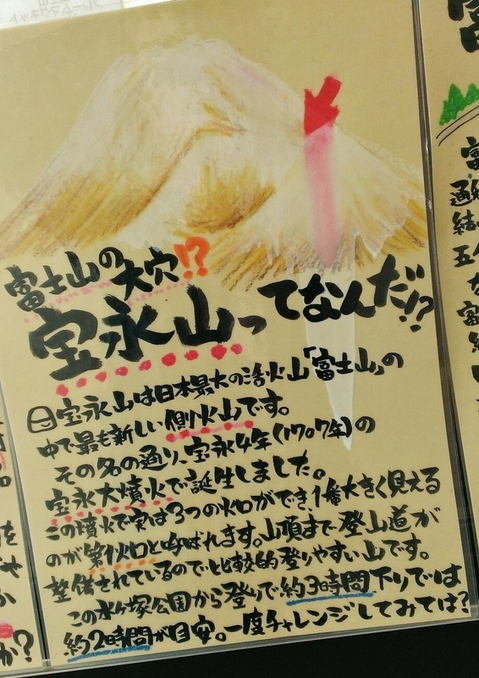 富士山の大穴!?
宝永山ってなんだ!?
宝永山は日本最大の活火山「富士山」の
中で最も新しい側火山です。
その名の通り、宝永4年(1707年)の
宝永大噴火で誕生しました。
この噴火で実は3つの火口ができ、1番大きく見える
のが第1火口と呼ばれます。山頂まで登山道が
整備されているので比較的登りやすい山です。
この水ヶ塚公園から登りで約3時間下りでは
約2時間が目安。一度チャレンジしてみては?